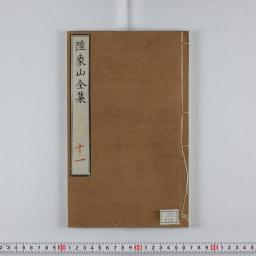 陸象山全集
十一